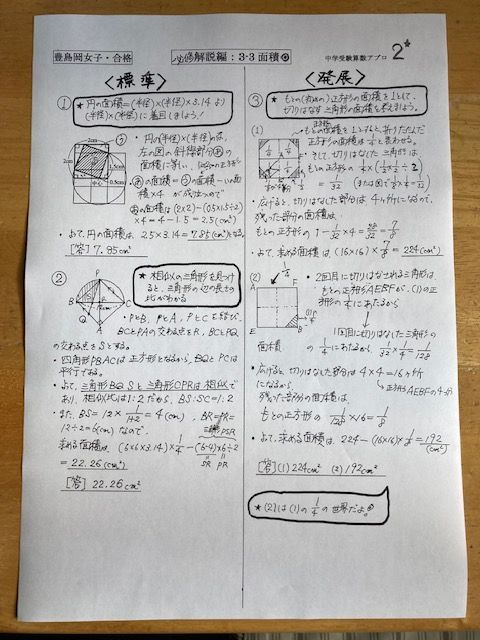 豊島岡女子・合格
必修解説編：3-3 面積
中学受験算数アプロ
2
＜標準＞
①
★ 円の面積＝(半径)×(半径)×3.14より
(半径)×(半径)に着目しましょう！
2cm
・円の(半径)×(半径)の値は、
左の図の斜線部分㋐の
面積に等しい。
2cm
中心
0.5cm
1.5cm
㋐の面積＝の面積－いの面
積×4が成立つので
㋐の面積は (2×2)－(0.5×1.5÷2)
×4＝4－1.5＝2.5(cm²)
・よって、円の面積は、2.5×3.14＝7.85(cm²)となる。
[答] 7.85cm²
②
★ 相似の三角形を見つけ
ると、三角形の辺の長さの
比がわかる
P
B
A
C
Q
・PとB、PとA、PとCを結び、
BCとPAの交わる点をR、BCとPQ
の交わる点をSとする。
・四角形PBACは正方形となるから、BQとPCは
平行である。
・よって、三角形BQSと三角形CPSは相似で
あり、相似比は1:2だから、BS:SC=1:2
・また、BS＝12×1/1+2＝4(cm)、BR=PR=
12÷2=6(cm)なので、
求める面積は、(6×6×3.14)×1/4－(6-4)×6÷2
SR PR
＝22.26(cm²)
[答] 22.26(cm²)
＜発展＞
③
★ もとの(最初の)正方形の面積を1として、
切りはなす三角形の面積を考えましょう。
(1)
・もとの面積を1とすると、折りたたんだ
正方形の面積は1/4と表わせる。
・そして、切りはなした三角形は、
もとの正方形の 1/4×(1/2×1/2÷2)
＝1/32
・広げると、切りはなした部分は4ヶ所になるので、
残った部分の面積は、
もとの正方形の 1－1/32×4＝28/32＝7/8
・よって、求める面積は (16×16)×7/8＝224(cm²)
(2)
1/4
A
F
E
B
・2回目に切りはなされる三角形は、
もとの正方形AEBFが、(1)の正
方形の1/4にあたるから
1回目に切りはなした三角形の
面積の
1/4にあたるから、1/32×1/4＝1/128
・広げると、切りはなした部分は4×4＝16ヶ所
になるから、
正方形AEBFの4つ分
残った部分の面積は、
もとの正方形の 1/128×16＝1/8
・よって、求める面積は、224－(16×16)×1/8＝192
(cm²)
[答] (1) 224cm² (2) 192cm²
★(2)は(1)の1/4の世界だよ。